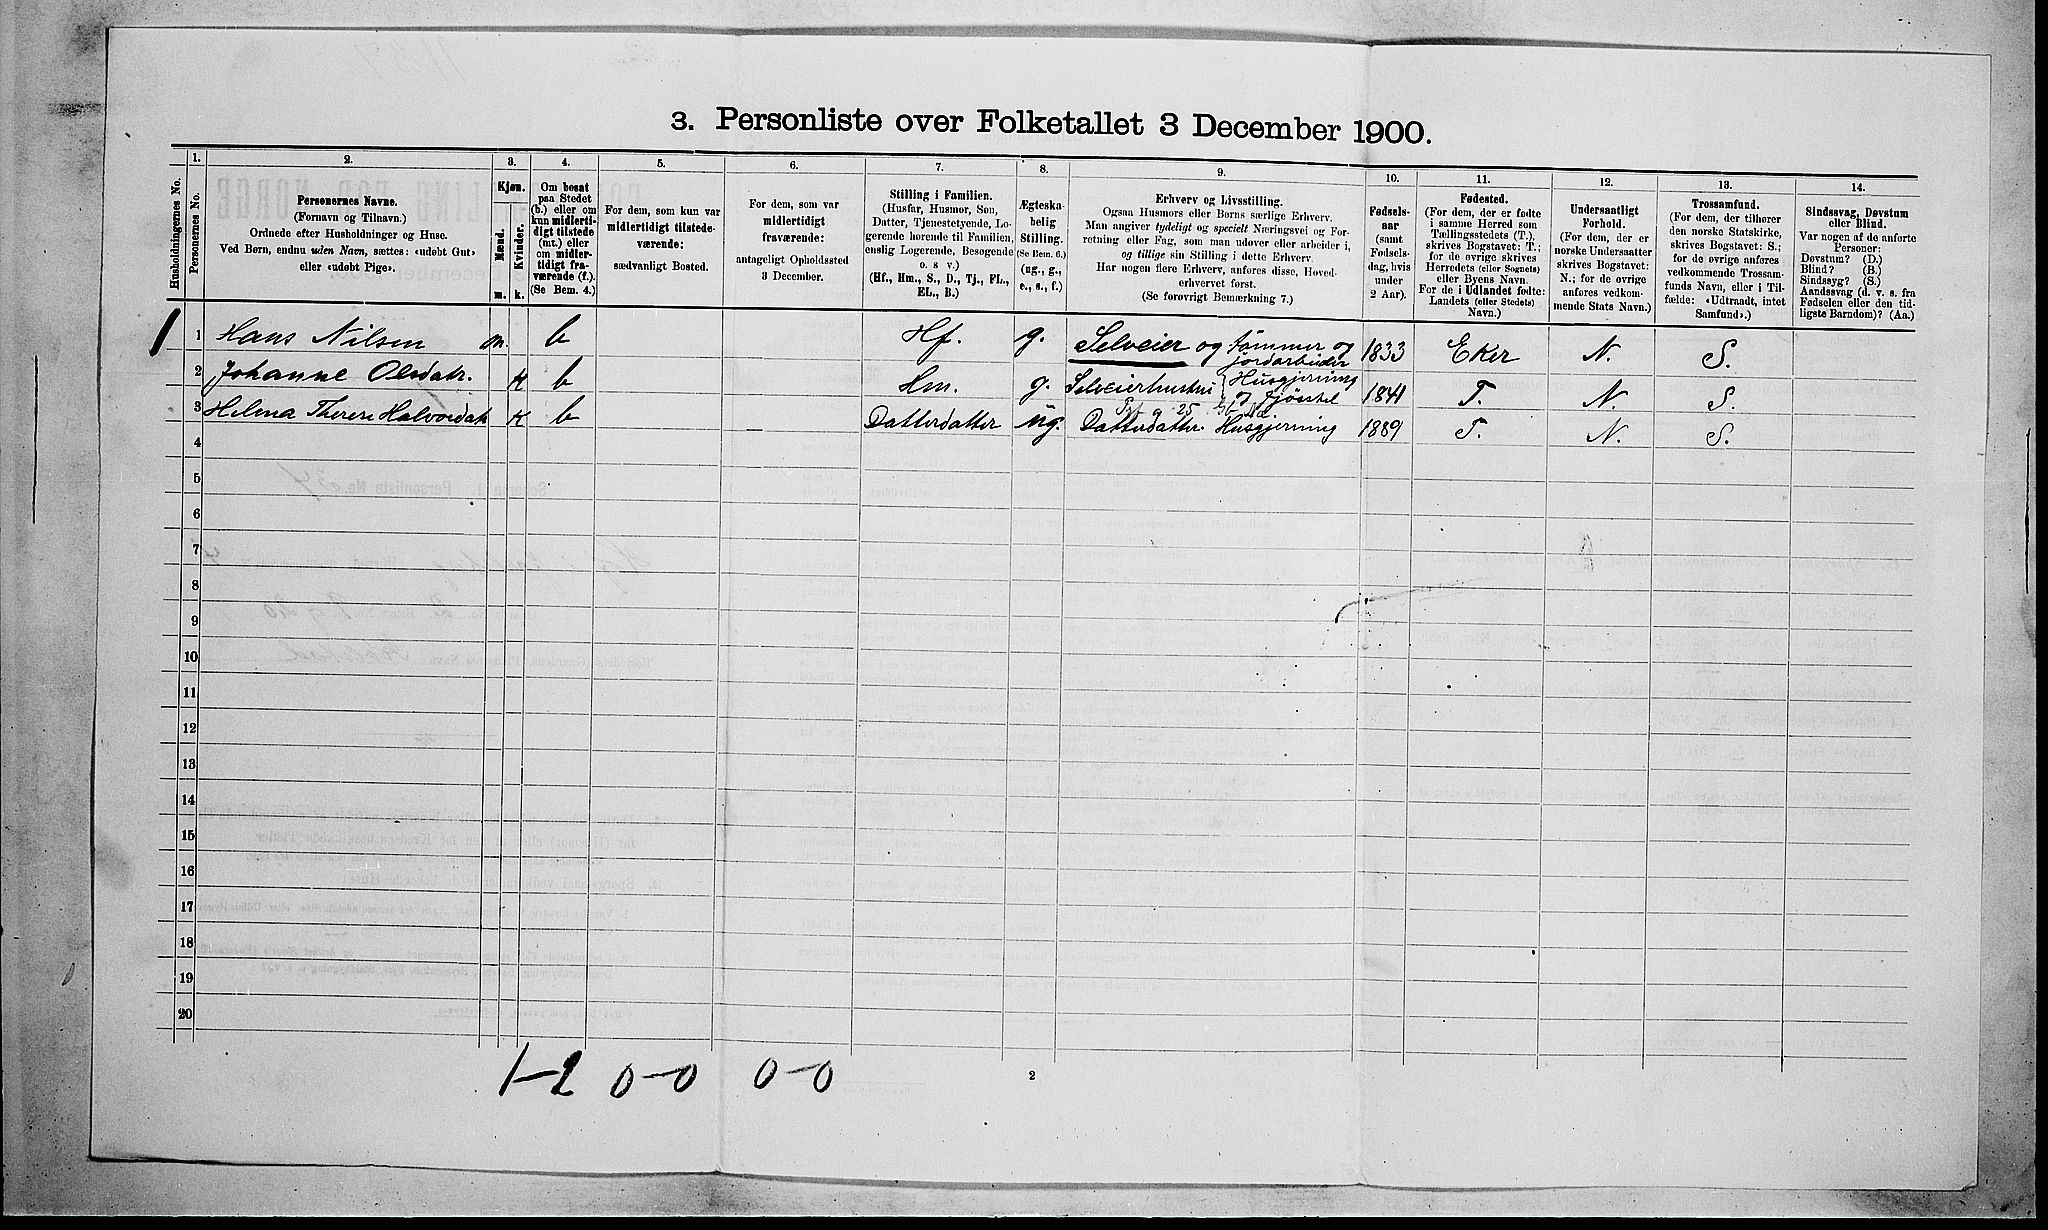 3. Personliste over Folketallet 3 December 1900.
Husholdningernes No.
1.
Personernes No.
2.
Personernes Navne.
(Fornavn og Tilnavn.)
Ordnede efter Husholdninger og Huse.
Ved Børn, endnu uden Navn, sættes: «udøbt Gut»
eller «udøbt Pige».
3.
Kjøn.
Mænd.
Kvinder.
m. k.
4.
Om bosat
paa Stedet
(b.) eller om
kun midlerti-
digt tilstede
(mt.) eller
om midler-
tidigt fra-
værende (f.).
(Se Bem. 4.)
5.
For dem, som kun var
midlertidigt tilstede-
værende:
sædvanligt Bosted.
6.
For dem, som var
midlertidigt
fraværende:
antageligt Opholdssted
3 December.
7.
Stilling i Familien.
(Husfar, Husmor, Søn,
Datter, Tjenestetyende, Lo-
gerende hørende til Familien,
enslig Logerende, Besøgende
o. s v.)
(Hf., Hm., S., D., Tj., FL.,
EL., B.)
8.
Ægteska-
belig
Stilling.
(Se Bem. 6.)
(ug., g.,
e., s., f.)
9.
Erhverv og Livsstilling.
Ogsaa Husmors eller Børns særlige Erhverv.
Man angiver tydeligt og specielt Næringsvei og For-
retning eller Fag, som man udøver eller arbeider i,
og tillige sin Stilling i dette Erhverv.
Har nogen flere Erhverv, anføres disse, Hoved-
erhvervet først.
(Se forøvrigt Bemærkning 7.)
10.
Fødsels-
aar
(samt
Fødsels-
dag, hvis
under
2 Aar).
11.
Fødested.
(For dem, der er fødte
i samme Herred som
Tællingsstedets (T.),
skrives Bogstavet: T.;
for de øvrige skrives
Herredets (eller Sognets)
eller Byens Navn.
For de i Udlandet fødte:
Landets (eller Stedets)
Navn.)
12.
Undersaatligt
Forhold.
(For dem, der er
norske Undersaatter
skrives Bogstavet:
N.; for de øvrige
anføres vedkom-
mende Stats Navn.)
13.
Trossamfund.
(For dem, der tilhører
den norske Statskirke,
skrives Bogstavet: S.;
for de øvrige anføres
vedkommende Trossam-
funds Navn, eller i Til-
fælde: «Udtraadt, intet
Samfund».)
14.
Sindssvag, Døvstum
eller Blind.
Var nogen af de anførte
Personer:
Døvstum? (D.)
Blind? (B.)
Sindssyg? (S.)
Aandssvag (d. v. s. fra
Fødselen eller den tid-
ligste Barndom)? (Aa.)
1 1 Hans Nilsen m. b Hf. g. Selveier og tømmer og jordarbeider 1833 Eker N. S.
2 Johanne Olsdatr. K b Hm. g. Selveierhustru Husgjerning og fjøsstel 1841 T. N. S.
3 Helena Therese Halvorsdatr K b Datterdatter ug. Datterdatter. Husgjerning 1889 T. N. S.
4
5
6
7
8
9
10
11
12
13
14
15
16
17
18
19
20
1-2 0-0 0-0
2